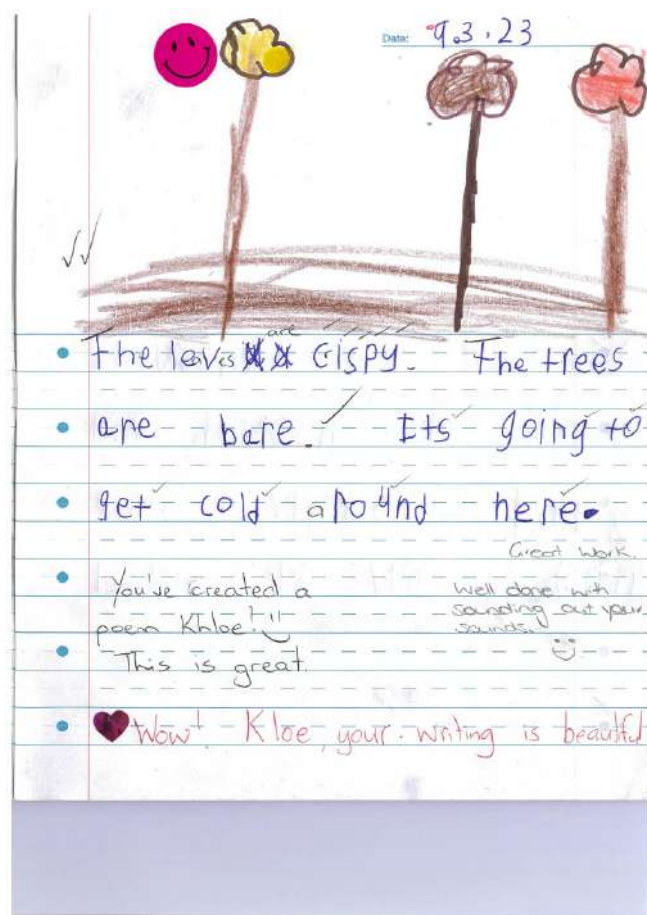 Date: 9.3.23
are
The leavs crispy. The trees
are bare. Its going to
get cold around here.
Great work.
You've created a
poem Khloe!
This is great.
Well done with
sounding out your
sounds.
Wow! Kloe, your writing is beautful